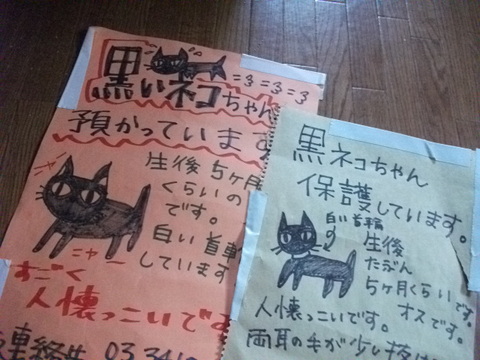 黒いネコちゃん
=3=3=3
預かっています
生後5ヶ月
くらいの
です。
白い首輪
しています
ニャー
すごく
人懐っこいです
03 341
黒ネコちゃん
保護しています。
白い首輪
生後
たぶん
5ヶ月くらいです。
オスです。
人懐っこいです。
両耳の手が少し